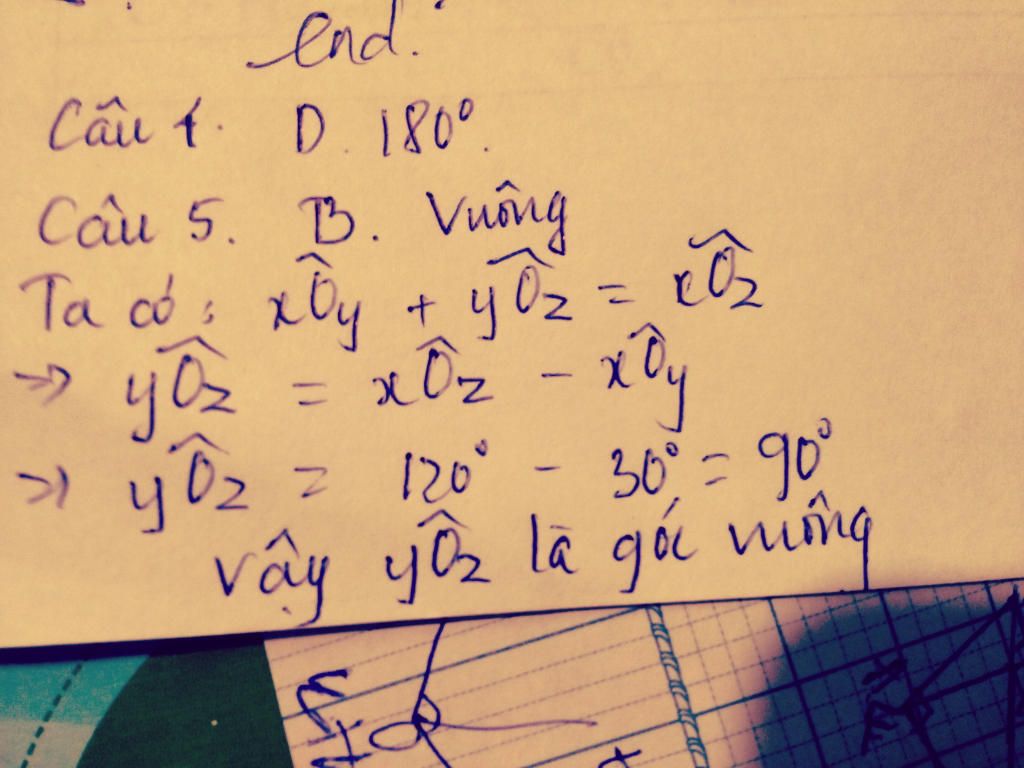 end.
Câu 1. D. 180°.
Câu 5. B. Vuông
Ta có: xÔy + yÔz = xÔz
=> yÔz = xÔz - xÔy
=> yÔz = 120° - 30° = 90°
vậy yÔz là góc vuông